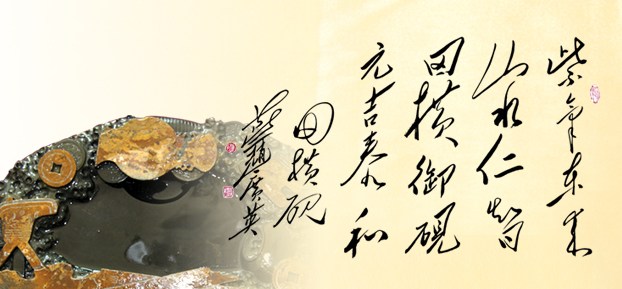 紫气东来
山水仁智
田横御硯
元吉泰和
田横砚